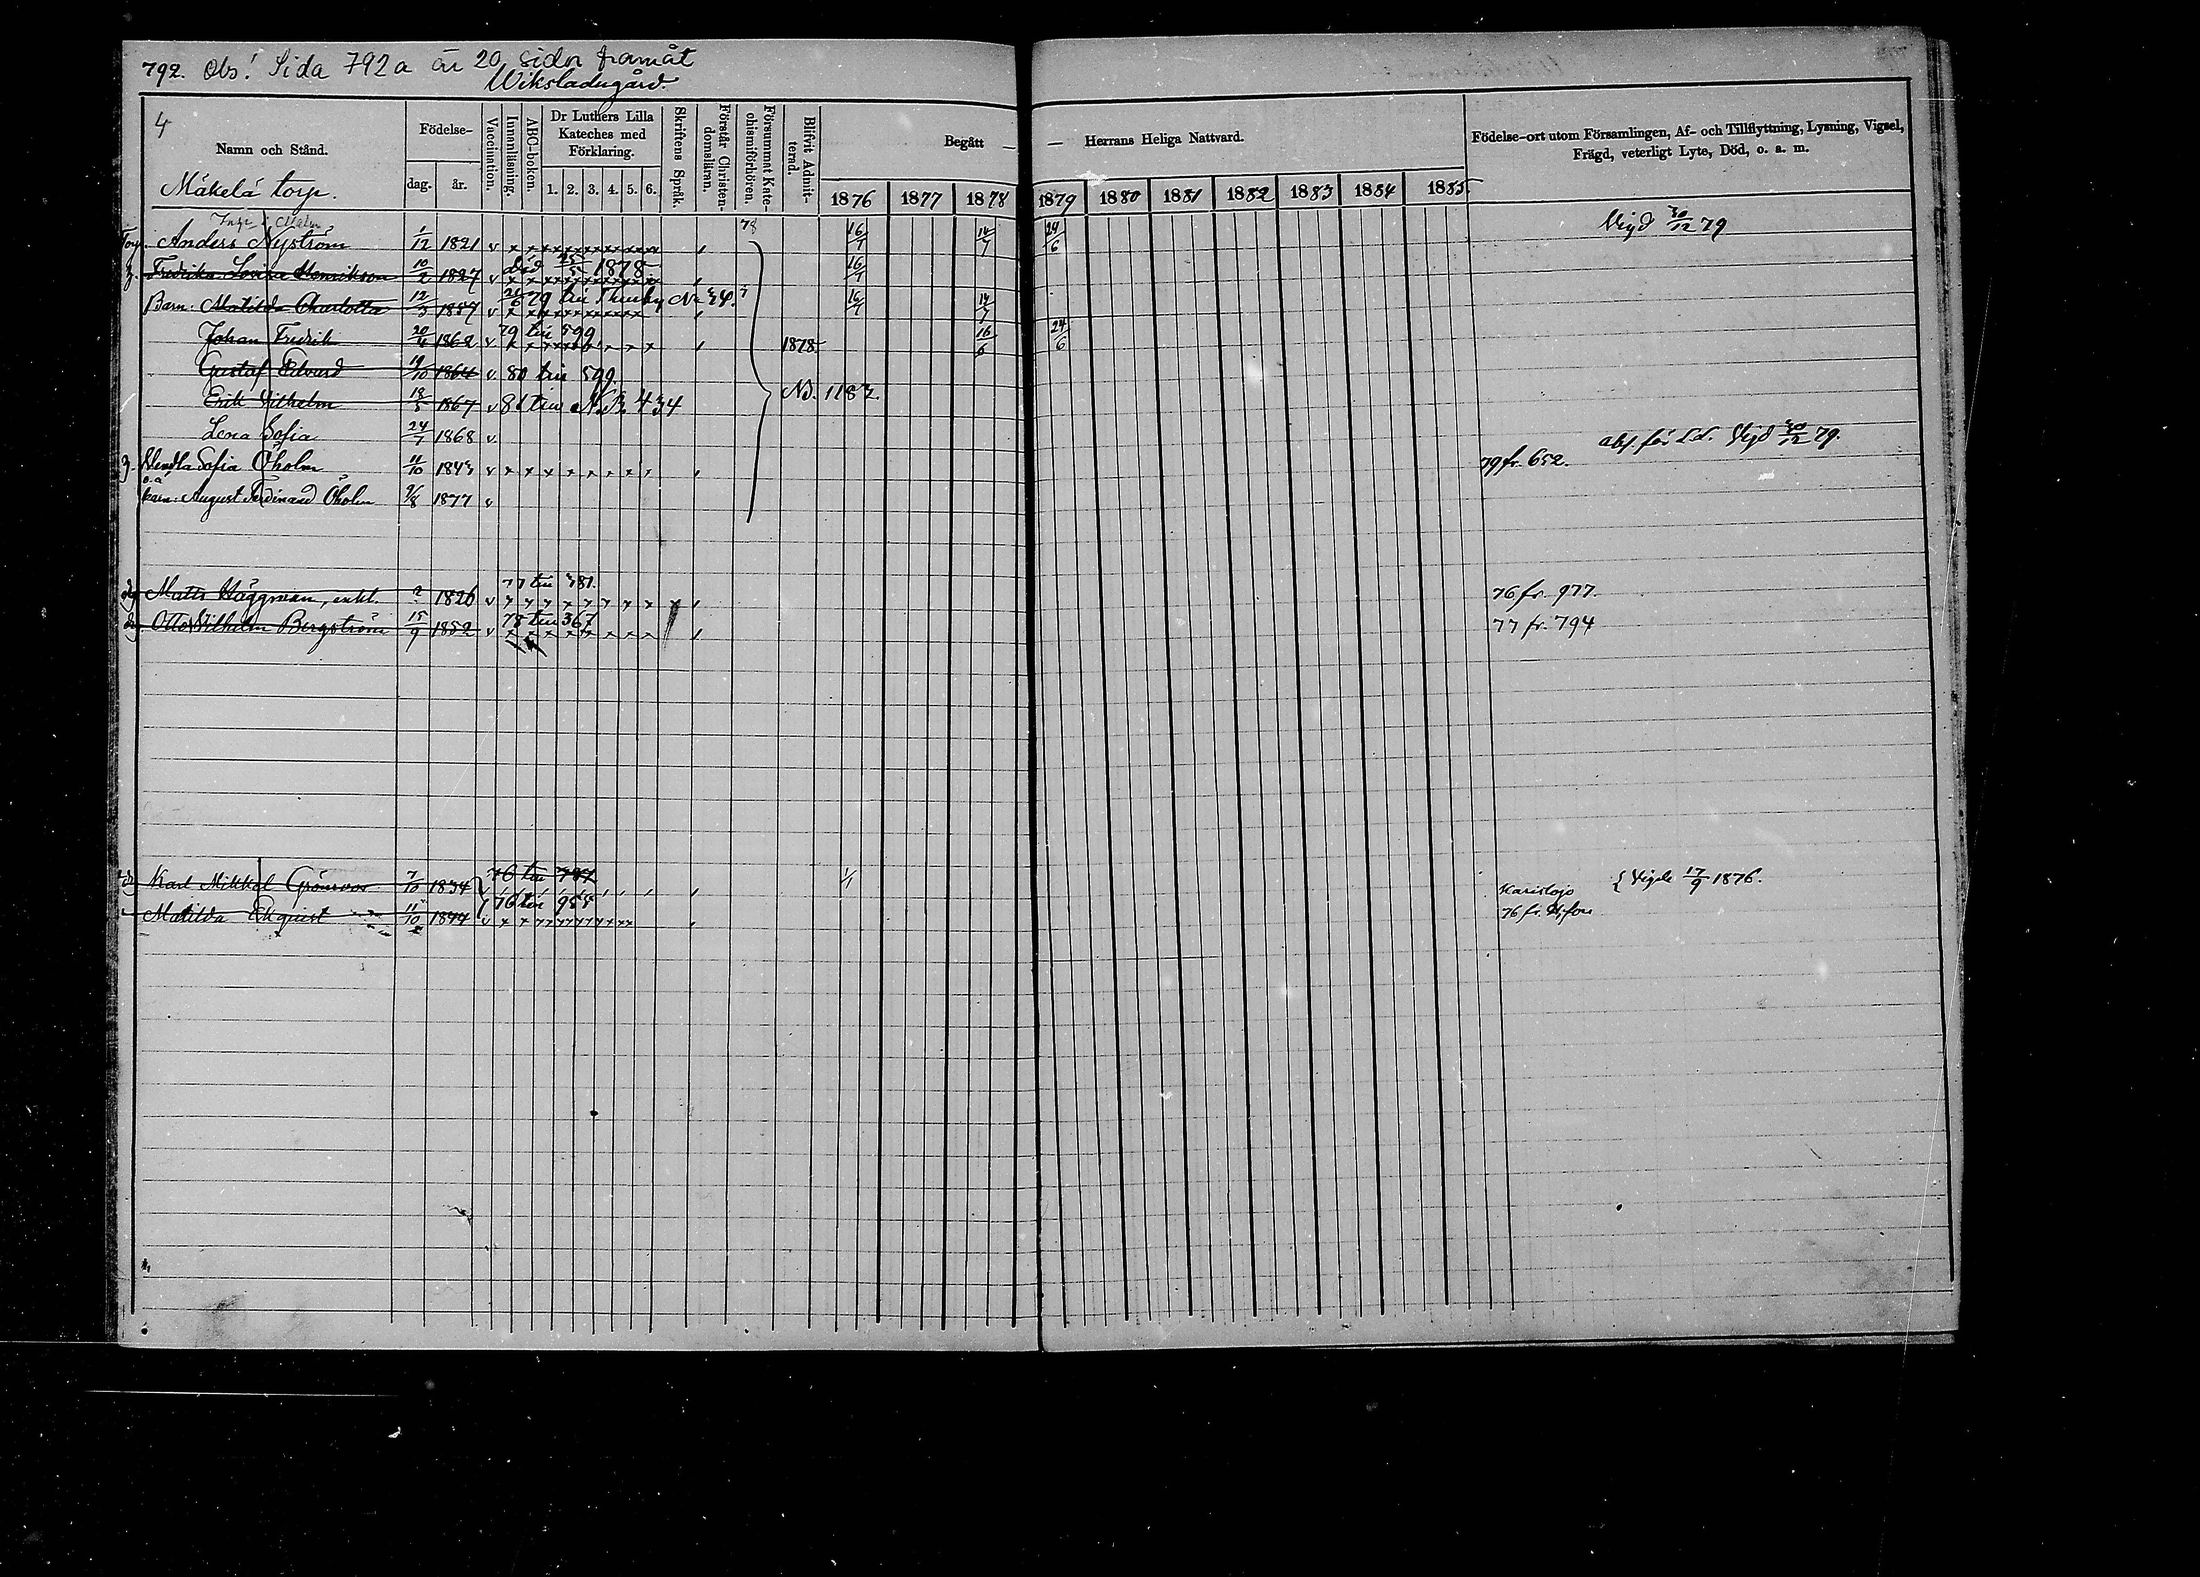 792. Obs! Sida 792a är 20 sidor framåt
Wiksladugård.
4
Namn och Stånd.
Födelse-
dag. år.
Vaccination.
Innanläsning.
ABC-boken.
Dr Luthers Lilla Kateches med Förklaring.
1. 2. 3. 4. 5. 6.
Skriftens Språk.
Förstår Christendomsläran.
Försummat Katechismiförhören.
Blifvit Admitterad.
Begått — — Herrans Heliga Nattvard.
1876 1877 1878 1879 1880 1881 1882 1883 1884 1885
Födelse-ort utom Församlingen, Af- och Tillflyttning, Lysning, Vigsel,
Frägd, veterligt Lyte, Död, o. a. m.
Mäkelä torp.
Torp. Anders Nyström 1/12 1821 v 78 16/7 14/7 24/6 Vigd 30/12 79
h. Fredrika Lovisa Henrikson 10/2 1827 v död 25/5 1878 16/7
Barn: Matilda Charlotta 12/3 1857 v 79 till 16/7 14/7
Johan Fredrik 20/4 1862 v 79 till 599 1878 16/6 24/6
Gustaf Edvard 19/10 1864 v 80 till 599
Erik Vilhelm 18/5 1867 v 81 till N.B. 434 NB. 1183.
Lena Sofia 24/7 1868 v
h. Wendla Sofia Öholm 11/10 1843 v 79 fr. 652. Vigd 30/12 79.
barn: August Ferdinand Öholm 9/8 1877 v
Matts Häggman, enkl. 1826 v 77 till 381. 76 fr. 977.
Otto Vilhelm Bergström 15/9 1852 v 78 till 367 77 fr. 794
Karl Mikkel Grönroos 7/10 1834 76 till 787 1/1 Karislojo { Vigde 17/9 1876.
Matilda Ekquist 11/10 1844 v 76 till 955 76 fr. H:fors